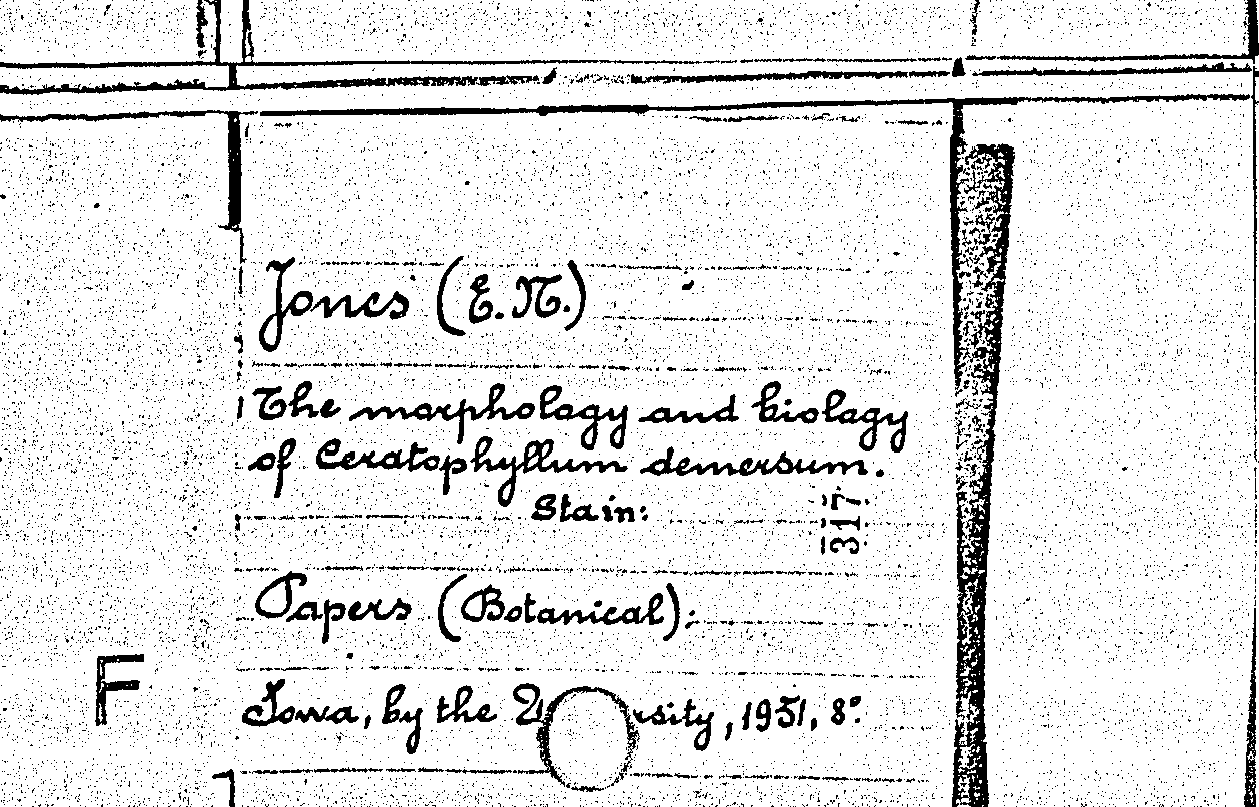 Jones (E.N.)
The morphology and biology
of Ceratophyllum demersum.
Stain:
317
Papers (Botanical):
F
Iowa, by the , 1931, 8°.